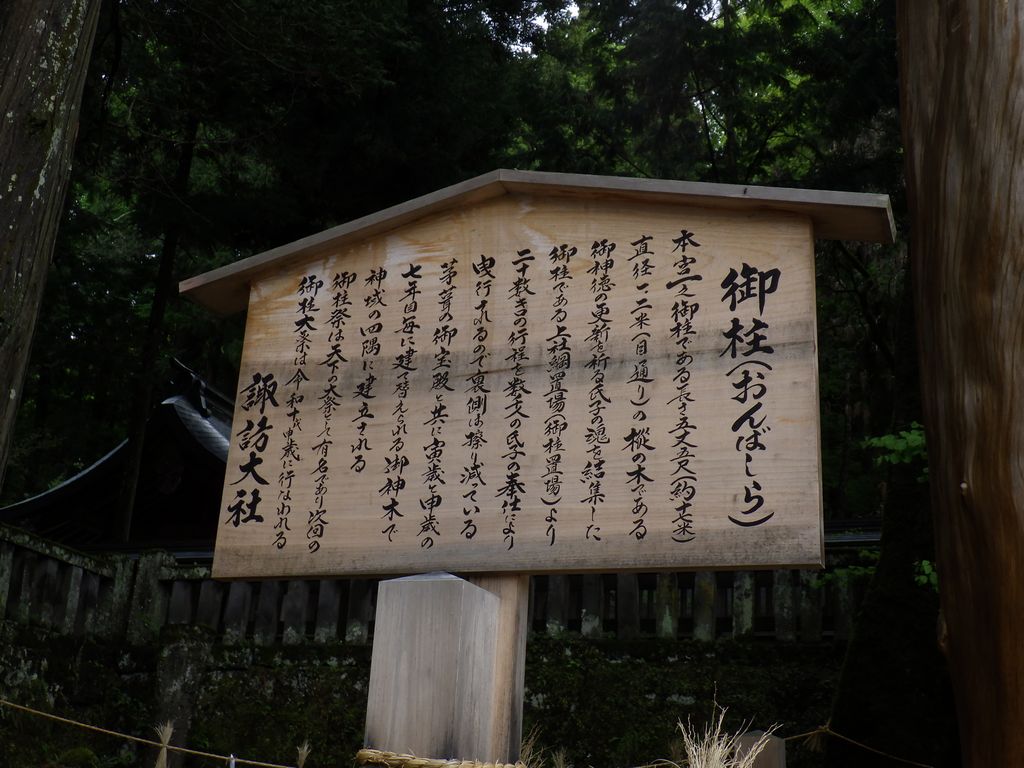 御柱(おんばしら)
本宮一之御柱である長さ五丈五尺(約十七米)
直径一二米(目通り)の樅の木である
御神徳の更新を祈る氏子の魂を結集した
御柱である上社綱置場(御柱置場)より
二十数粁の行程を数千の氏子の奉仕により
曳行されるので裏側は擦り減ている
茅葺の御宝殿と共に寅歳と申歳の
七年目毎に建て替えられる御神木で
神域の四隅に建立される
御柱祭は天下の大祭として有名であり次回の
御柱大祭は令和十年申歳に行なわれる
諏訪大社